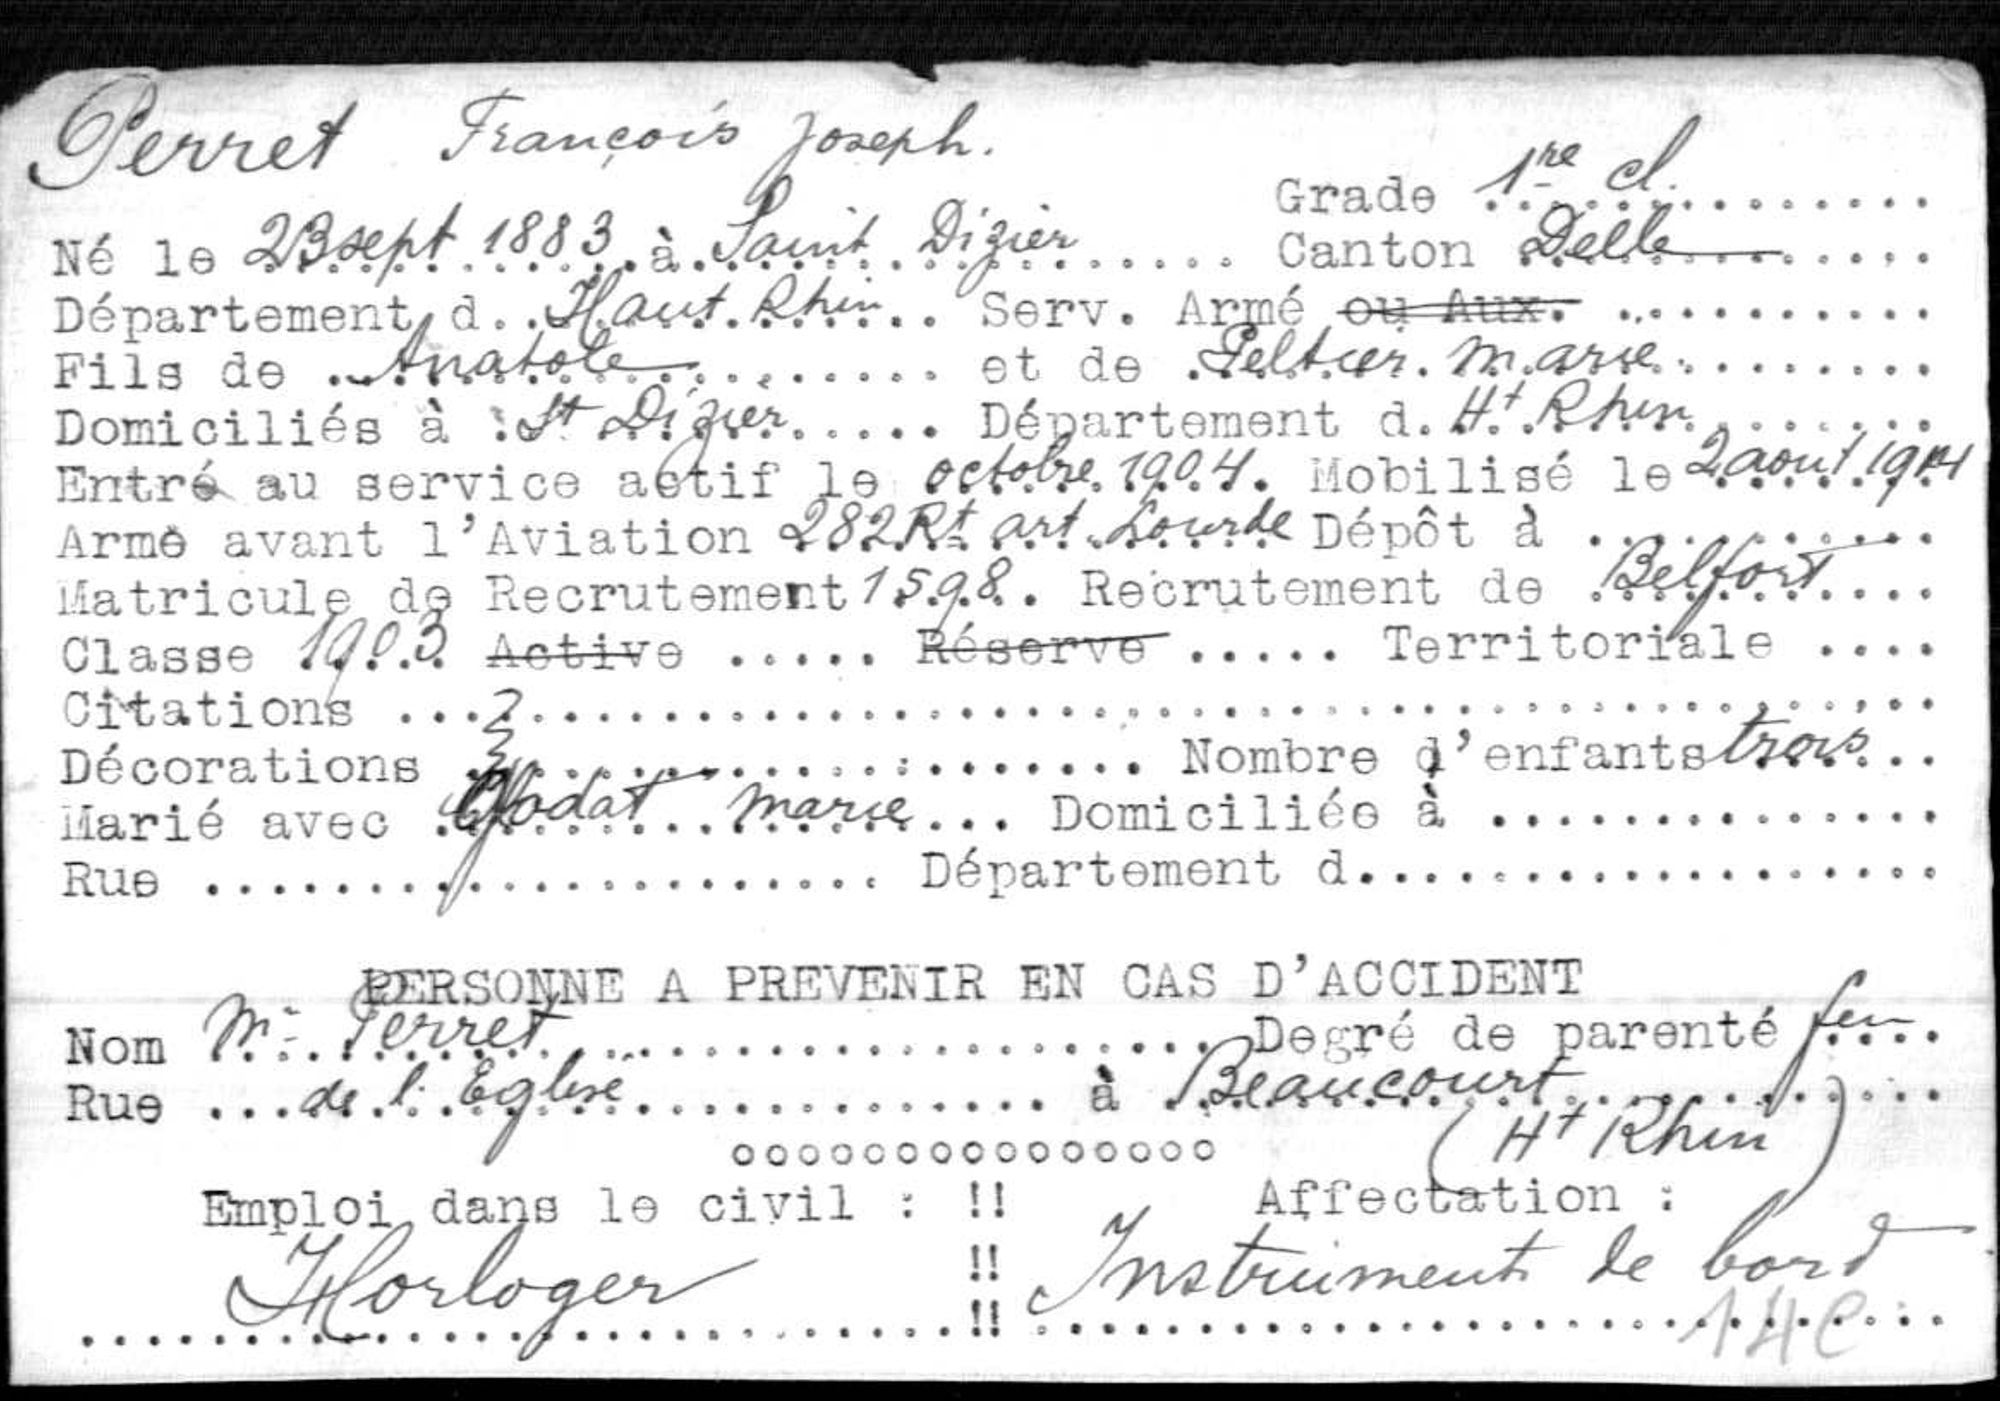 Perret François Joseph.
Grade 1re cl.
Né le 23 sept 1883 à Saint Dizier Canton Delle
Département d. Haut Rhin Serv. Armé ou Aux.
Fils de Anatole et de Peltier Marie
Domiciliés à St Dizier Département d. Ht Rhin
Entré au service actif le octobre 1904. Mobilisé le 2 aout 1914
Arme avant l'Aviation 282 Rt art. Lourde Dépôt à
Matricule de Recrutement 1598. Recrutement de Belfort
Classe 1903 Active ..... Réserve ..... Territoriale ....
Citations
Décorations Nombre d'enfants trois
Marié avec Marie Domiciliée à
Rue Département d.
PERSONNE A PREVENIR EN CAS D'ACCIDENT
Nom Me Perret Degré de parenté fem
Rue de l'Eglise à Beaucourt
(Ht Rhin)
Emploi dans le civil : !! Affectation :
Horloger !! Instruments de bord
!!
14C